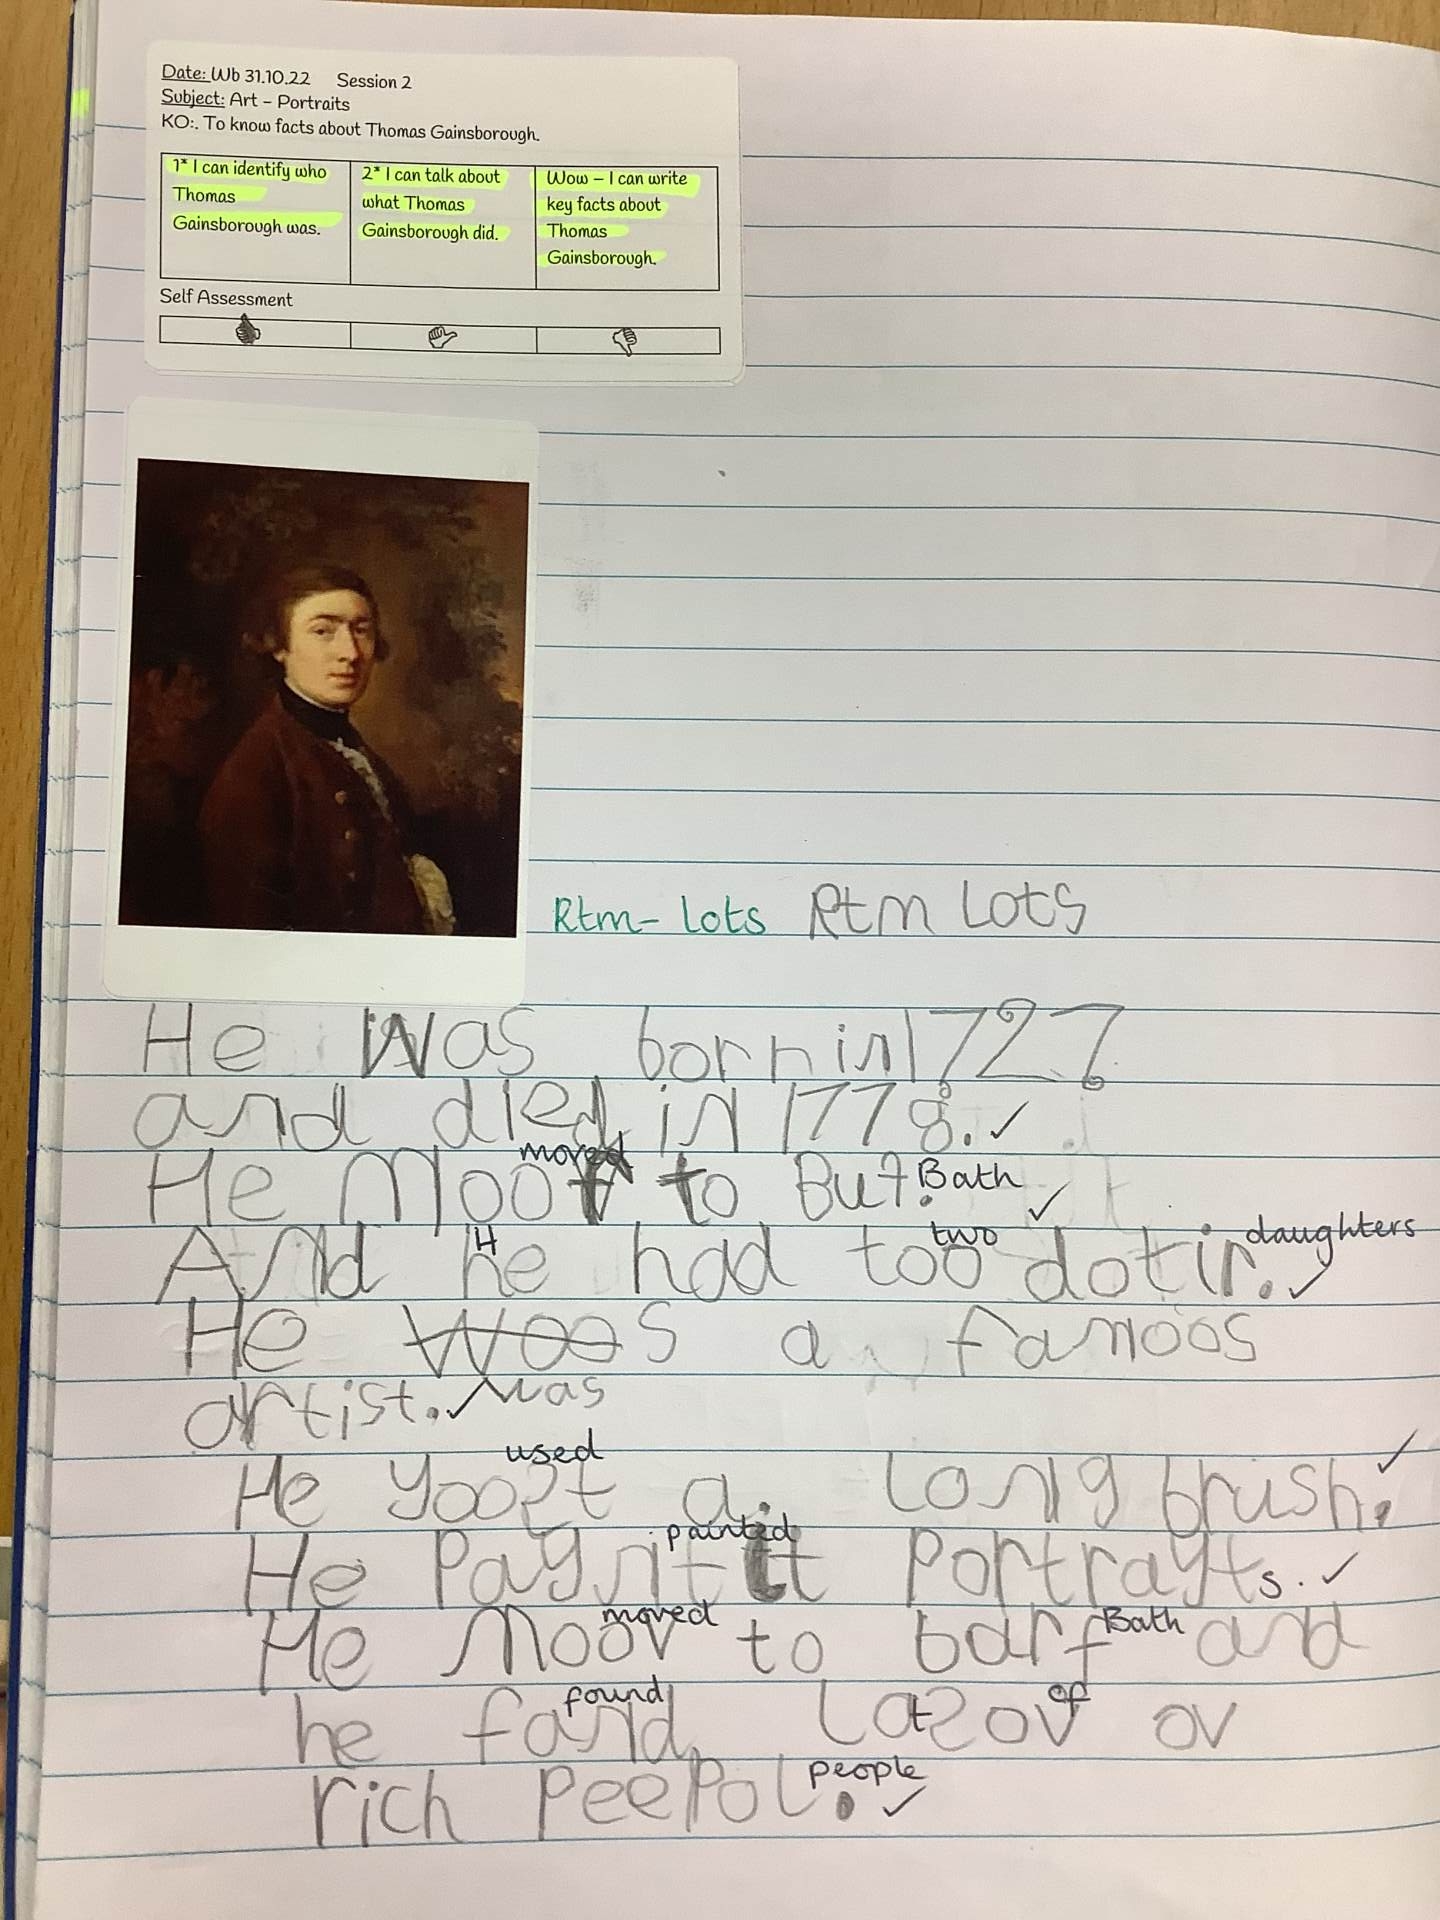 Date: Wb 31.10.22 Session 2
Subject: Art - Portraits
KO:. To know facts about Thomas Gainsborough.
1* I can identify who
Thomas
Gainsborough was.
2* I can talk about
what Thomas
Gainsborough did.
Wow – I can write
key facts about
Thomas
Gainsborough.
Self Assessment
Rtm- lots Rtm Lots
He was born in 1727
and died in 1778. ✓
moved
He Moov to But. Bath ✓
H two daughters
And he had too dotir. ✓
He woos a famoos
artist. ✓ was
used
He yoost a. long brush. ✓
painted
He Paynitt Portrayts. ✓
moved Bath
He Moov to barf and
found of
he fand latsov ov
rich PeePol. people ✓